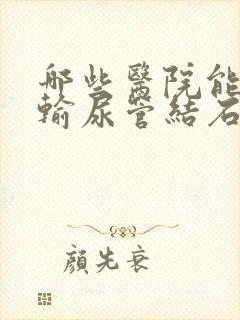 哪些醫院能
輸尿管結石
顏先衰